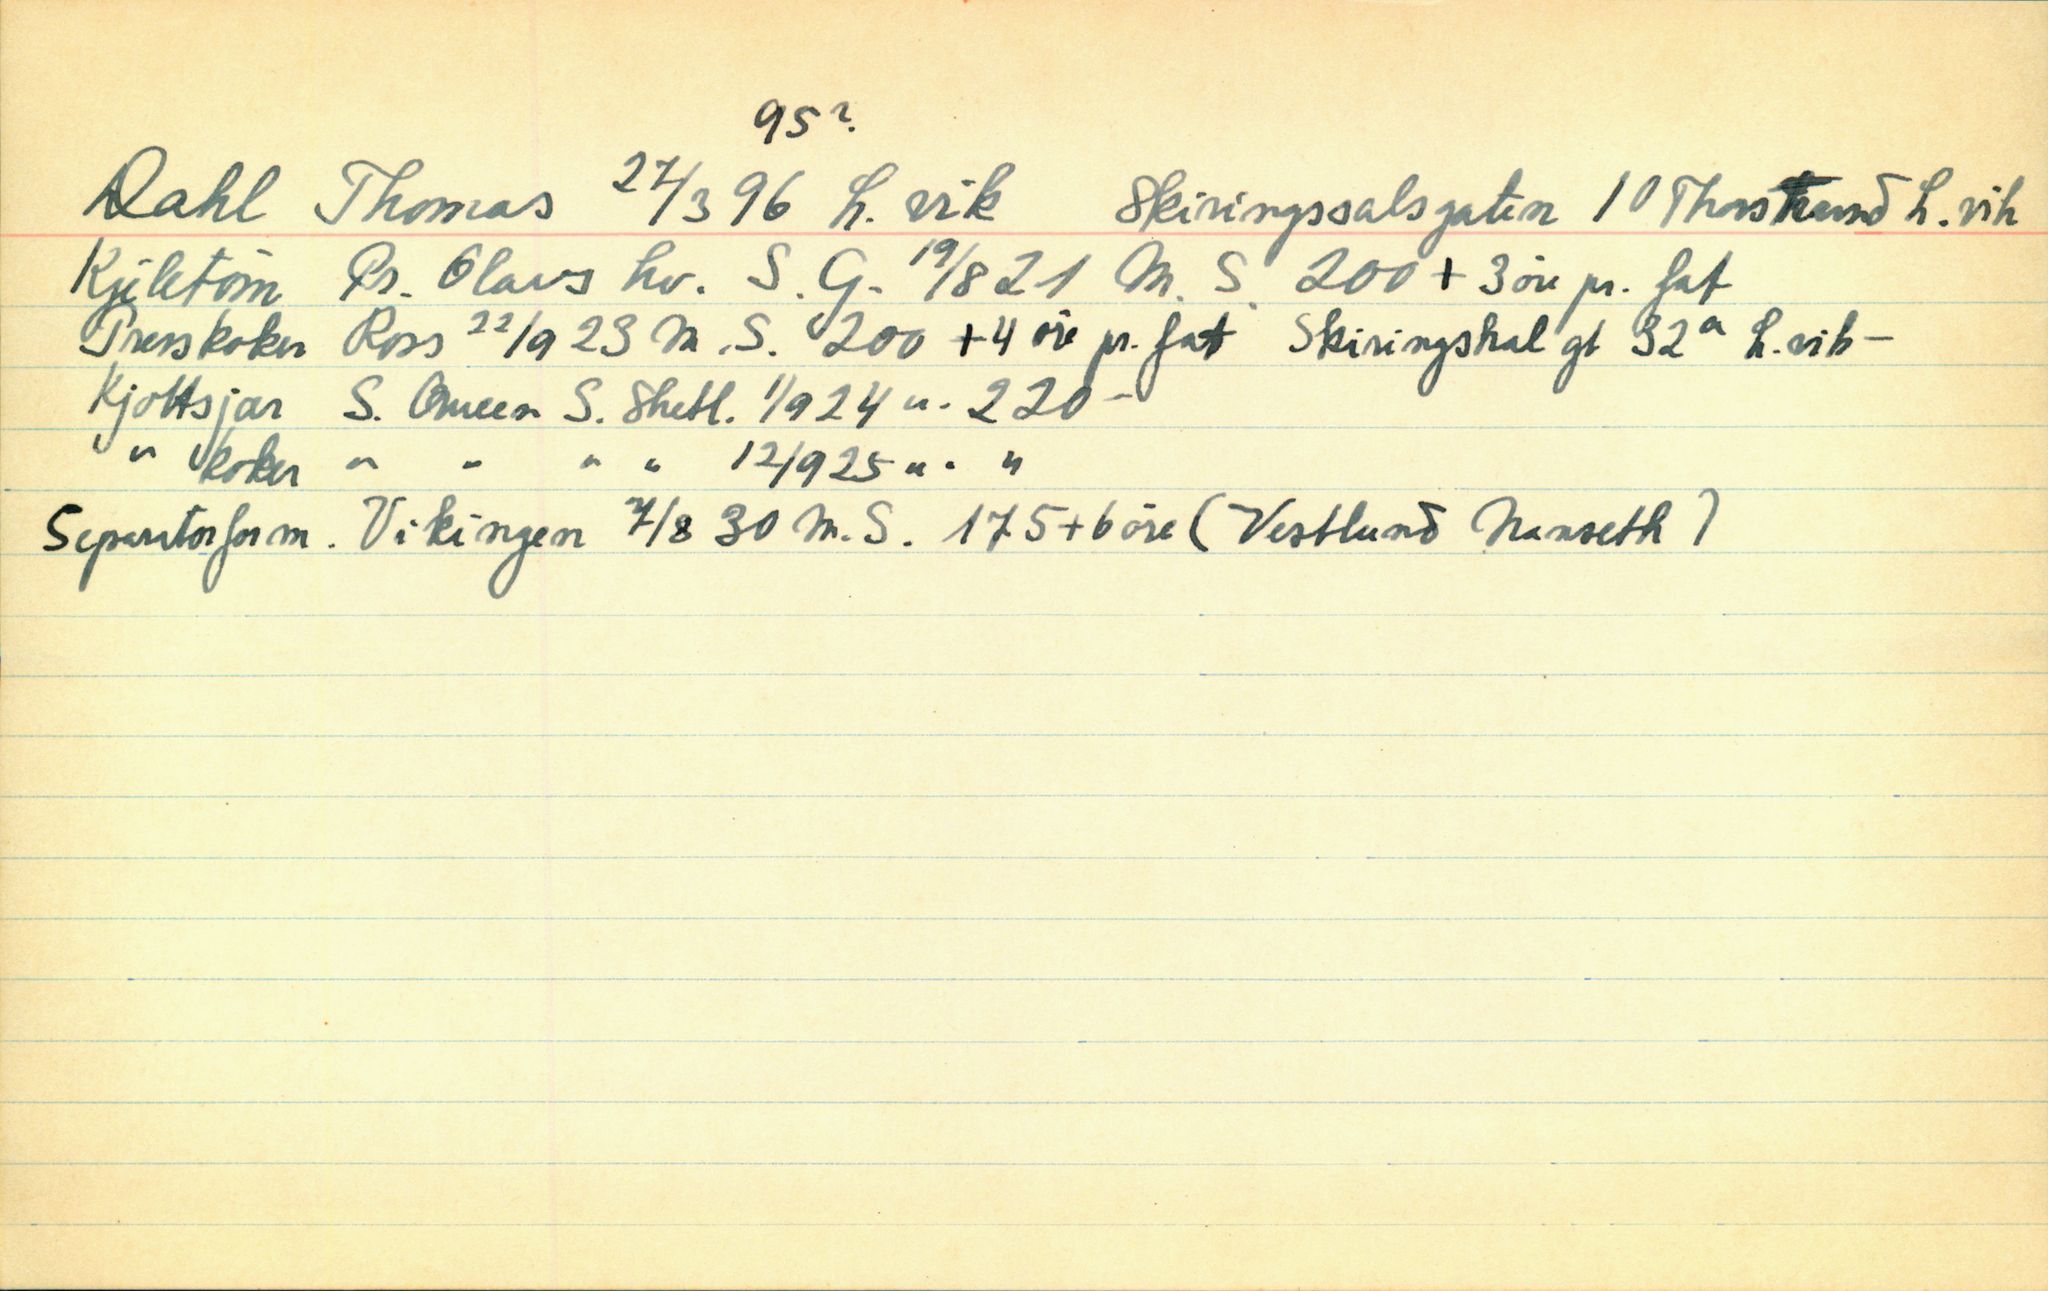 95?
Dahl Thomas 27/3 96 L.vik Skiringssalsgaten 10 Thorstrand L.vik
Kjeletöm Pr. Olavs hv. S.G. 19/8 21 M.S. 200 + 3 öre pr. fat
Presskoker Ross 22/9 23 M.S. 200 + 4 öre pr. fat Skiringshal gt 32a L.vik -
Kjöttsjar S. Queen S. Shetl. 1/9 24 u. 220 -
" " koker " " " " 12/9 25 u. "
Separatorform. Vikingen 7/8 30 M.S. 175 + 6 öre (Vestlund Nanseth)